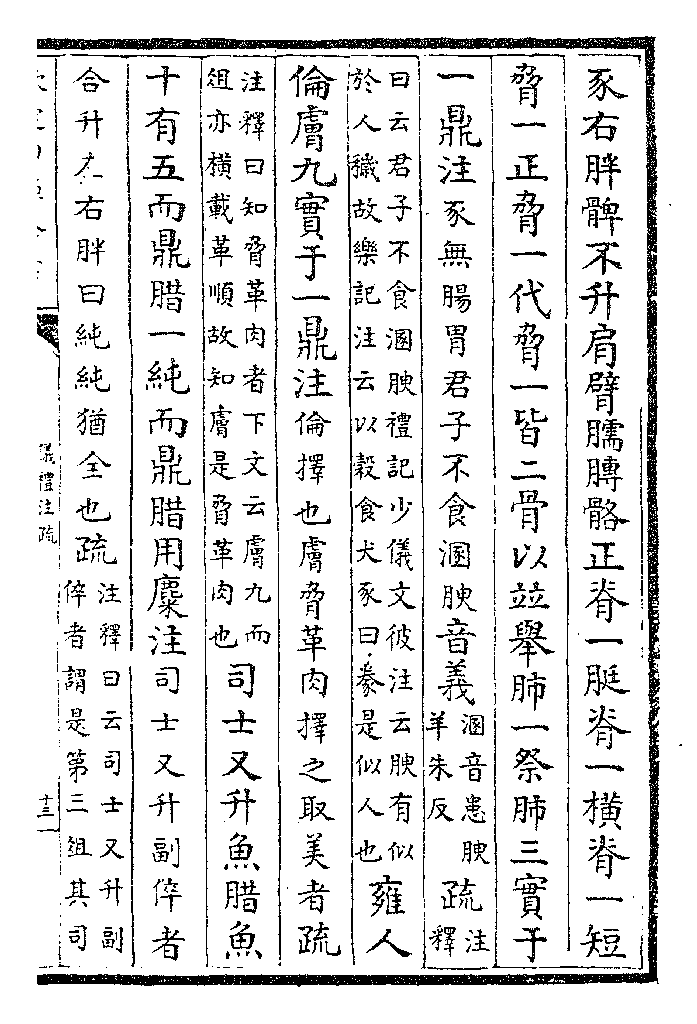 豕右胖髀不升肩臂臑膞骼正脊一脡脊一橫脊一短
脅一正脅一代脅一皆二骨以並舉肺一祭肺三實于
一鼎注豕無腸胃君子不食溷腴音義溷音患腴羊朱反疏注釋
曰云君子不食溷腴禮記少儀文彼注云腴有似於人穢故樂記注云以穀食犬豕曰豢是似人也雍人
倫膚九實于一鼎注倫擇也膚脅革肉擇之取美者疏
注釋曰知脅革肉者下文云膚九而俎亦橫載革順故知膚是脅革肉也司士又升魚腊魚
十有五而鼎腊一純而鼎腊用麋注司士又升副倅者
合升左右胖曰純純猶全也疏注釋曰云司士又升副倅者謂是第三俎其司
儀禮注疏